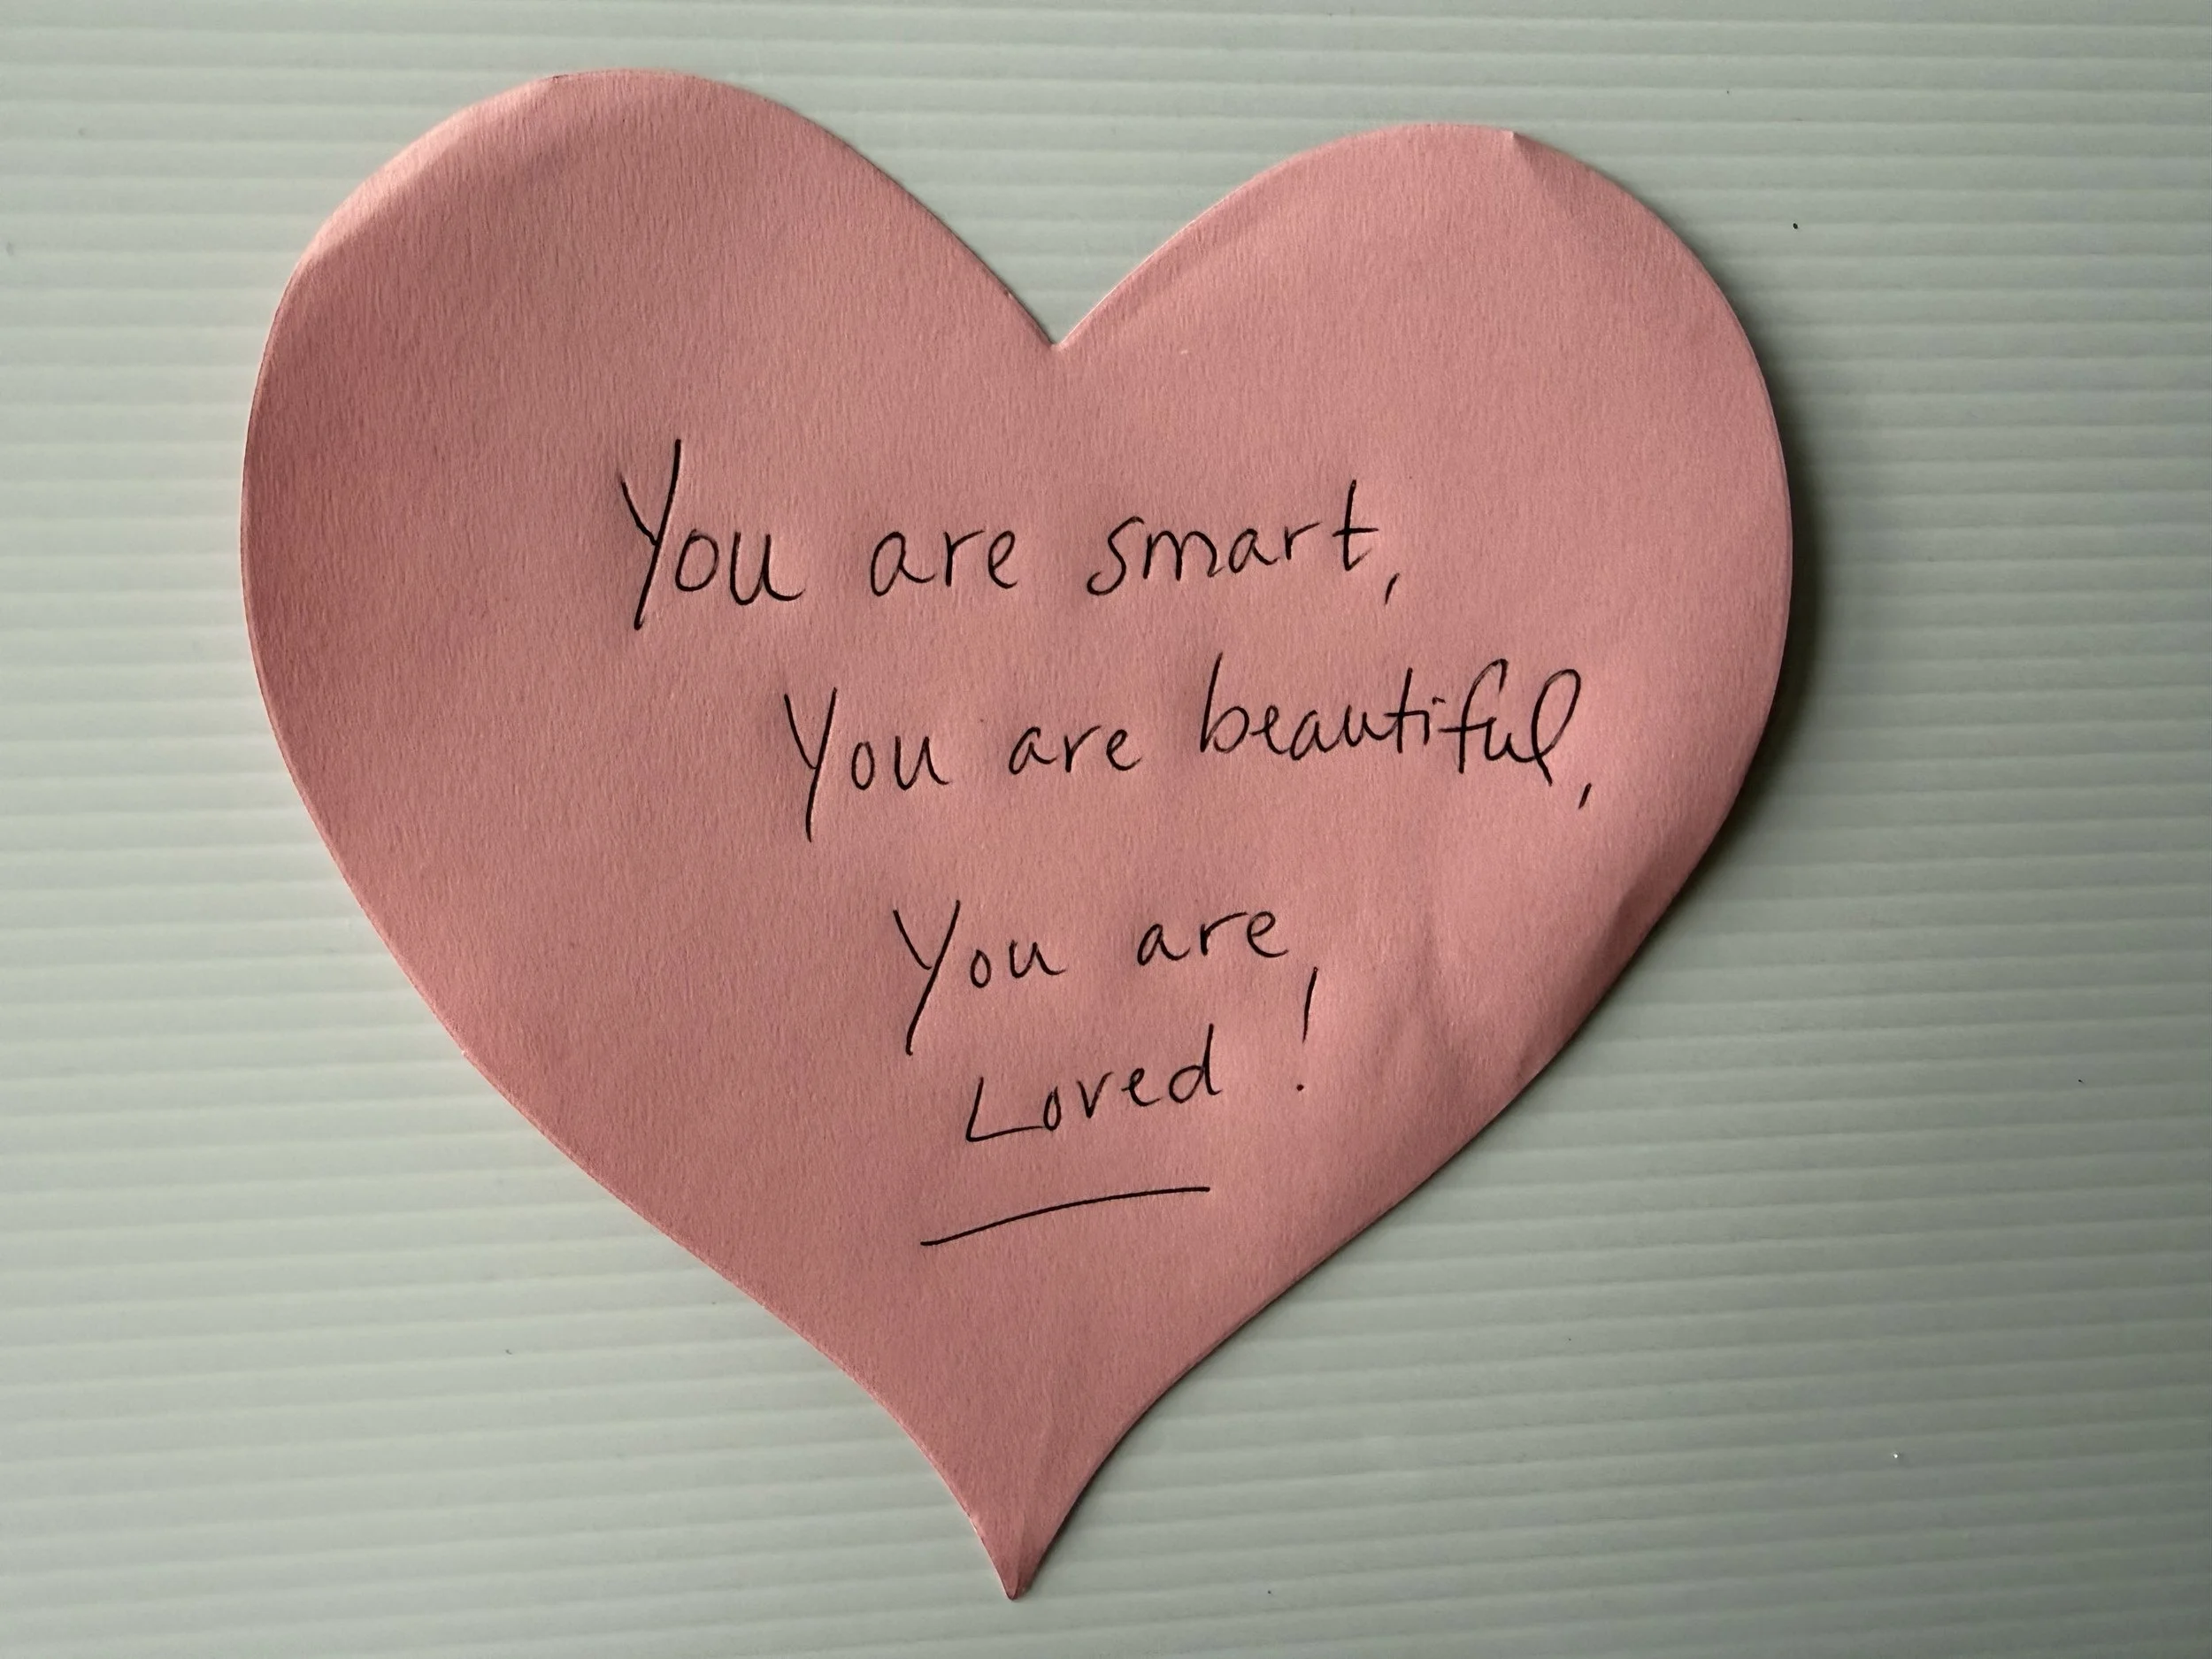 You are smart,
You are beautiful,
You are
Loved!